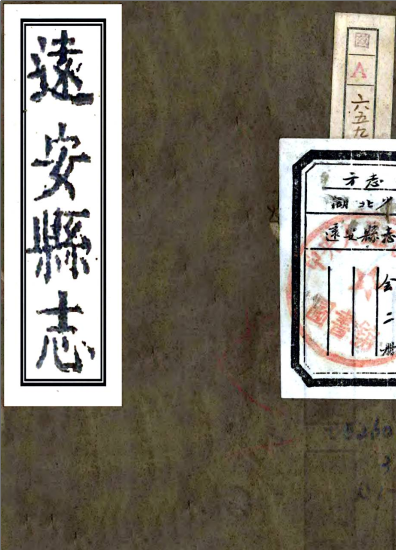 遠安縣志
國
A
六五九
方志
湖北
遠安縣志
全二册
圖書館
5260
3